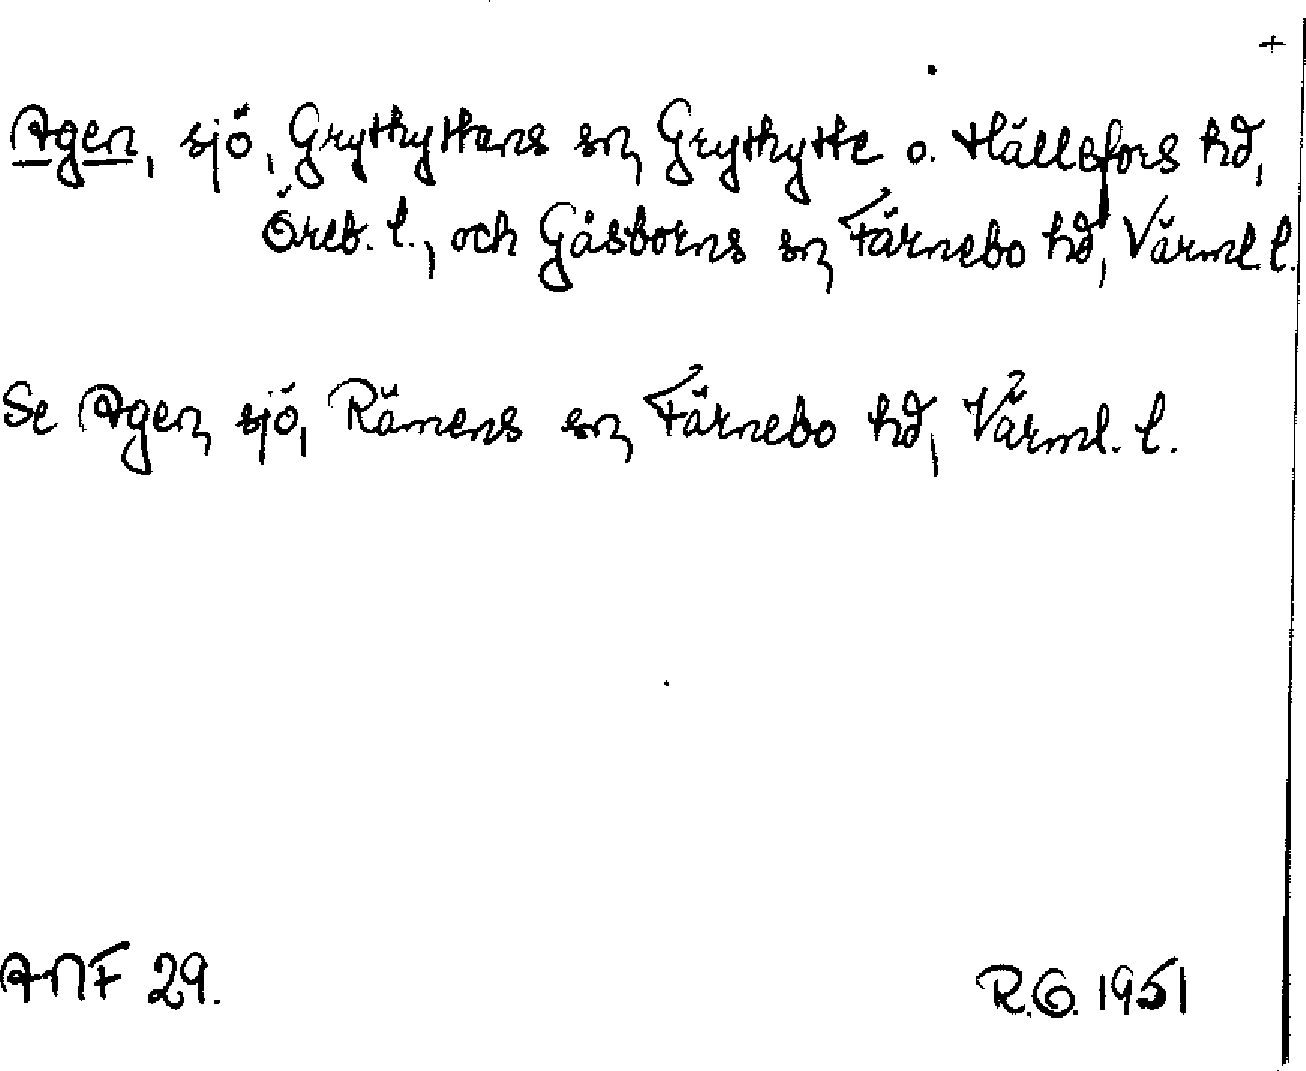 +
Agen, sjö, Grythyttans sn, Grythytte o. Hällefors hd,
Öreb. l., och Gåsborns sn, Färnebo hd, Värml. l.
Se Agen, sjö, Rämens sn, Färnebo hd, Värml. l.
ANF 29.
R.G. 1951